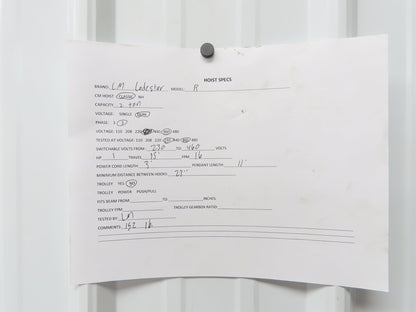 HOIST SPECS
BRAND: CM Lodestar MODEL: R
CM HOIST: CLASSIC NH
CAPACITY: 2 ton
VOLTAGE: SINGLE DUAL
PHASE: 1 3
VOLTAGE: 110 208 220 480
TESTED AT VOLTAGE: 110 208 220 480
SWITCHABLE VOLTS FROM: 230 TO 460 VOLTS
HP 1 TRAVEL 15' FPM 16
POWER CORD LENGTH: 3' PENDANT LENGTH: 11'
MINIMUM DISTANCE BETWEEN HOOKS: 27"
TROLLEY YES NO
TROLLEY POWER PUSH/PULL
FITS BEAM FROM: TO INCHES
TROLLEY FPM TROLLEY GEARBOX RATIO:
TESTED BY: LM
COMMENTS: 152 lb